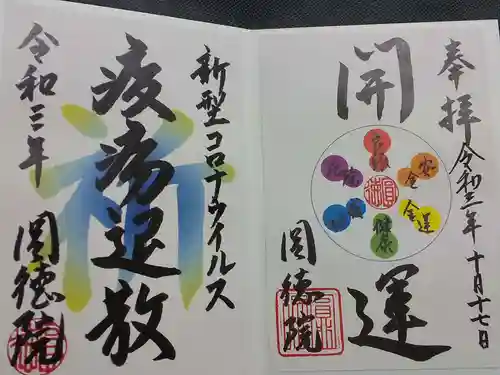 奉拝
令和三年十月十七日
開運
安全
金運
健康
圓徳院
新型コロナウイルス
疫病退散
祈
令和三年
圓徳院